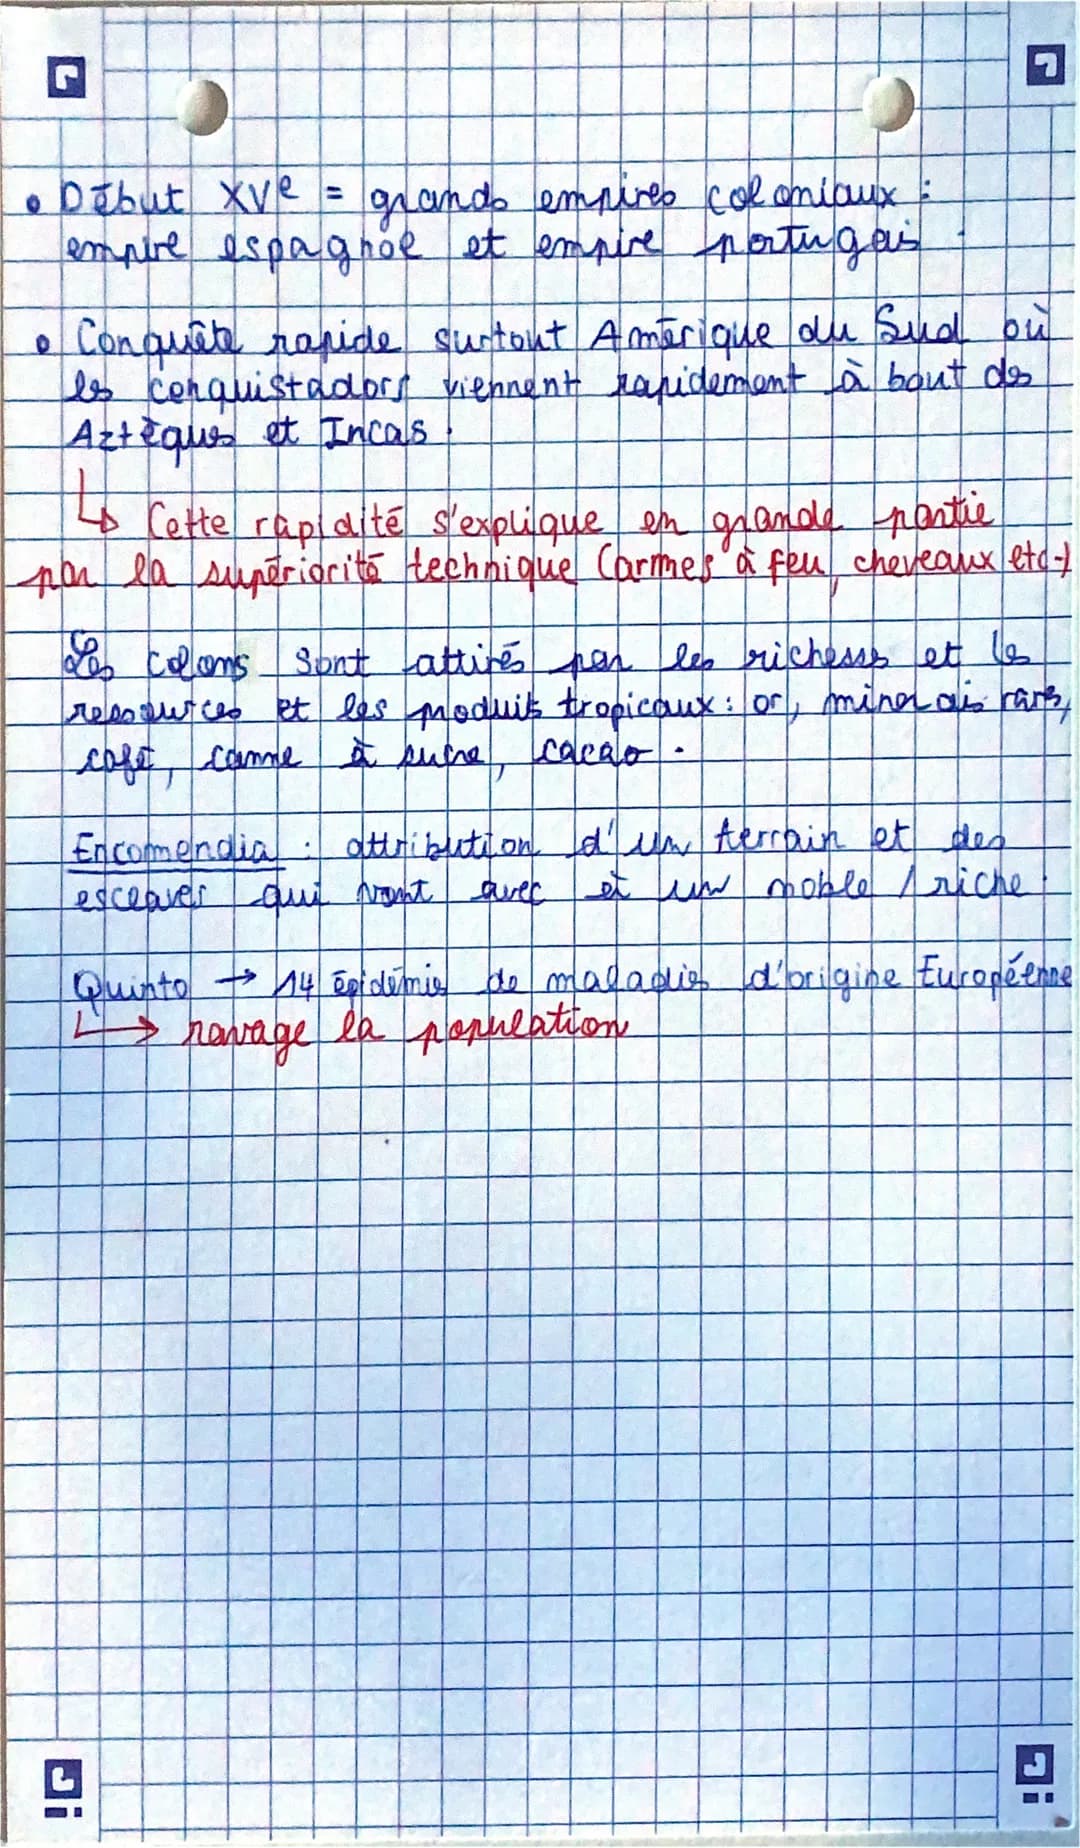 • Début XVe = grands empires coloniaux :
empire espagnol et empire portugais.
• Conquête rapide surtout Amérique du Sud où
les conquistadors viennent rapidement à bout des
Aztèques et Incas.
↳ Cette rapidité s'explique en grande partie
par la supériorité technique (armes à feu, cheveaux etc-)
Les colons sont attirés par les richesses et les
ressources et les produits tropicaux : or, minerais rares,
café, canne à sucre, cacao.
Encomendia : attribution d'un terrain et des
esclaves qui vont avec et un noble / riche.
Quinto → 14 épidémies de maladies d'origine Européenne
↳ ravage la population